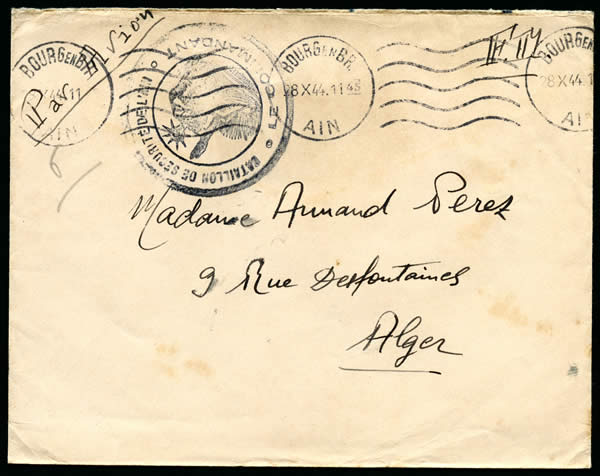 Par Avion
F. M
BOURG EN BR.
AIN
BOURG EN BR.
28 X 44. 11 45
AIN
BOURG EN BR.
28 X 44. 1
AIN
LE COMMANDANT
BATAILLON DE SECURITE DE L'AIN
Madame Armand Perez
9 Rue Desfontaines
Alger